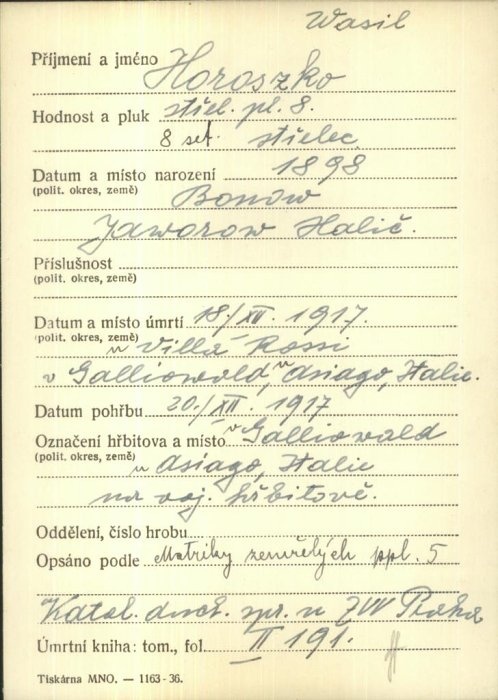 Wasil
Příjmení a jméno Horoszko
Hodnost a pluk střel. pl. 8.
8 set. střelec
Datum a místo narození 1898
(polit. okres, země) Bonow
Jaworow Halič.
Příslušnost
(polit. okres, země)
Datum a místo úmrtí 18./XII. 1917.
(polit. okres, země) u Villa Rossi
v Galliowald, u Asiago, Italie.
Datum pohřbu 20./XII. 1917
Označení hřbitova a místo v Galliowald
(polit. okres, země) u Asiago, Italie
na voj. hřbitově.
Oddělení, číslo hrobu
Opsáno podle Matriky zemřelých ppl. 5
Katol. duch. spr. u ZVV Praha
Úmrtní kniha: tom., fol. II 191.
Tiskárna MNO. — 1163-36.